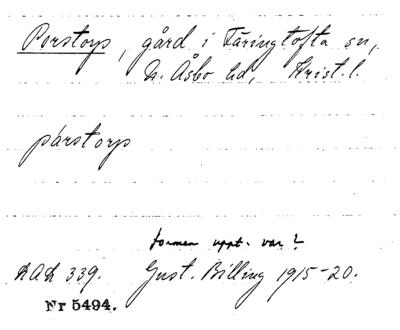 Perstorp, gård i Färingtofta sn,
N. Åsbo hd, Krist. l.
pärstorp
formen uppt. var?
LAL 339. Gust. Billing 1915-20.
Nr 5494.